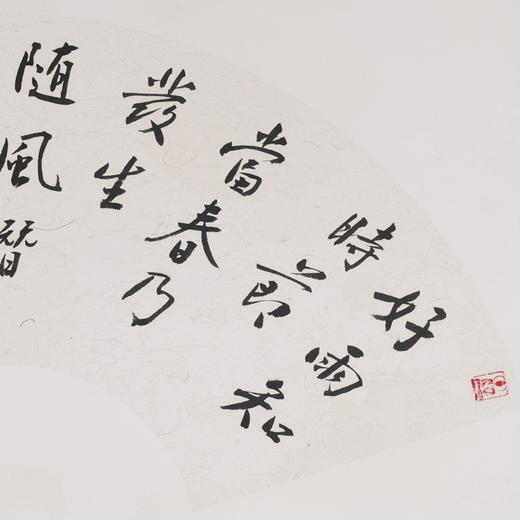 好雨知
時節
當春乃
發生
随風